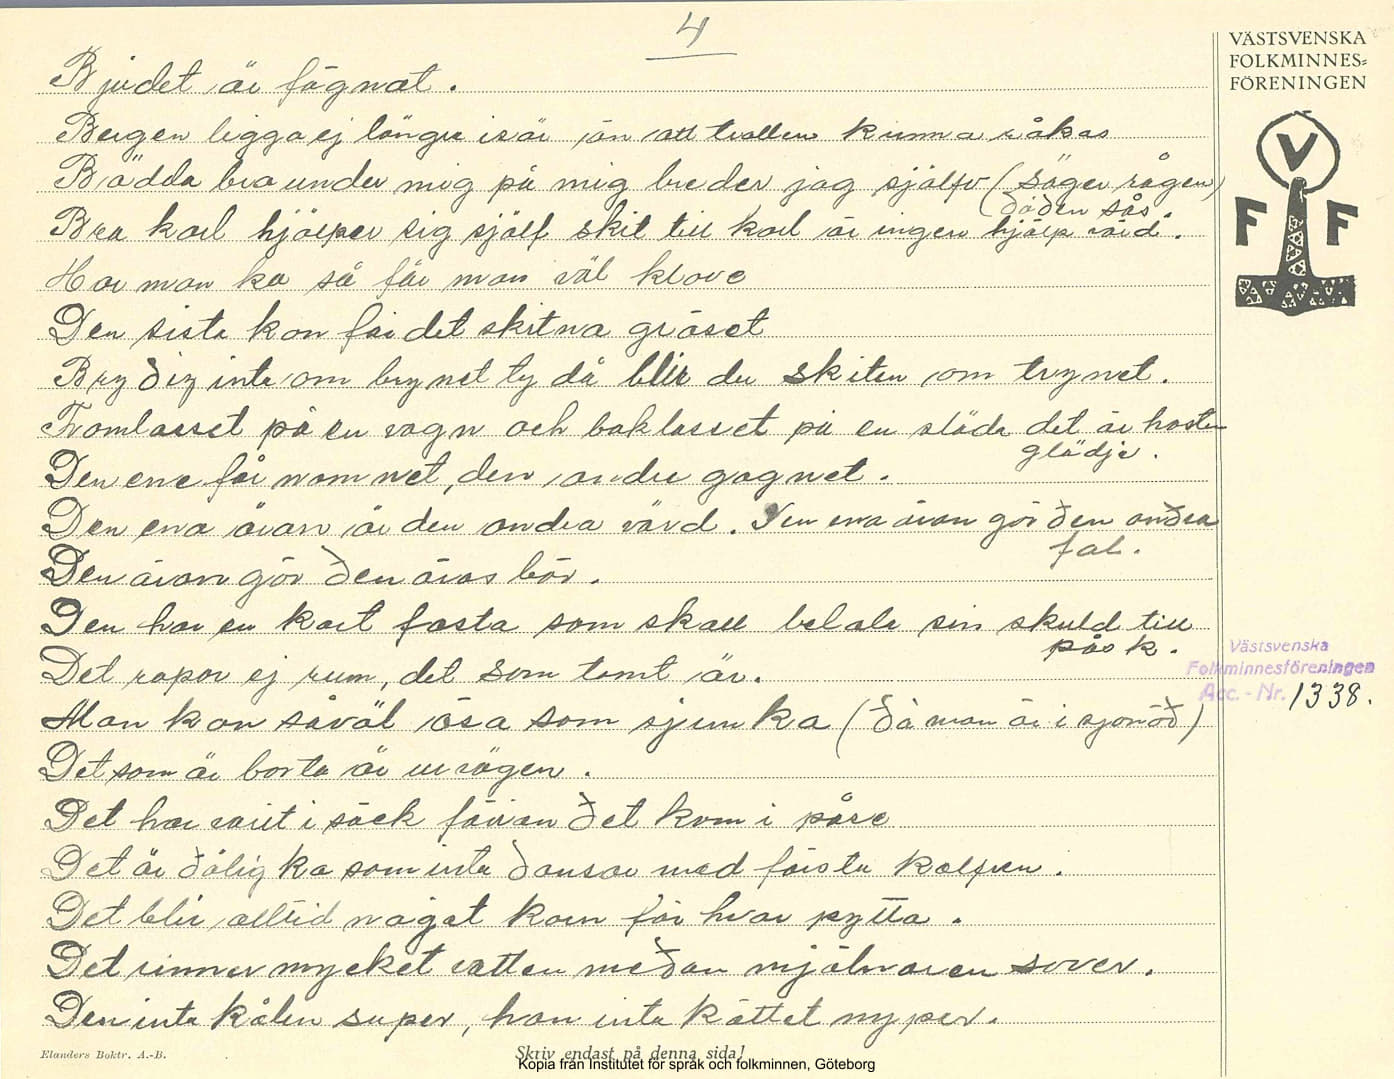 4
VÄSTSVENSKA
FOLKMINNES=
FÖRENINGEN
V
F F
Bjudet är fägnat.
Bergen ligga ej längre isär än att trollen kunna råkas
Bädda bra under mig på mig breder jag självf (säger rågen)
(då den sås.
Bra karl hjälper sig själf skit till karl är ingen hjälp värd.
Har man ko så får man väl klove
Den sista kon får det skitna gräset
Bry dig inte om brynet ty då blir du skiten om trynet.
Framlasset på en vagn och baklasset på en släde det är hästens
glädje.
Den ene får namnet, den andre gagnet.
Den ena äran är den andra värd. Den ena äran gör den andra
fal.
Den äran gör den äras bör.
Den har en kort fasta som skall betala sin skuld till
påsk.
Det rapar ej rum, det som tomt är.
Man kan såväl ösa som sjunka (då man är i sjönöd)
Det som är borta är ur vägen.
Det har varit i säck förran det kom i påse
Det är dålig ko som inte dansar med första kalfven.
Det blir alltid något korn för hvar pytta.
Det rinner mycket vatten medan mjölnaren sover.
Den inte kålen super, han inte köttet nyper.
Västsvenska
Folkminnesföreningen
Acc. - Nr. 1338.
Elanders Boktr. A.-B.
Skriv endast på denna sida!
Kopia från Institutet för språk och folkminnen, Göteborg